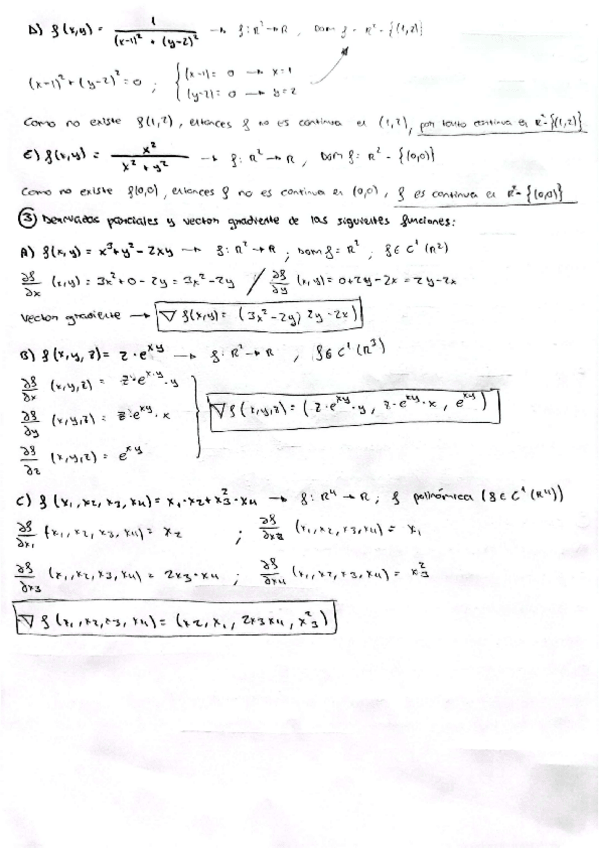 D) f(x,y) = 1 / ((x-1)² + (y-2)²) → f: R² → R, Dom f = R² - {(1,2)}
(x-1)² + (y-2)² = 0 ; { (x-1) = 0 → x = 1
(y-2) = 0 → y = 2
Como no existe f(1,2), entonces f no es continua en (1,2), por tanto continua en R² - {(1,2)}
E) f(x,y) = x² / (x² + y²) → f: R² → R, Dom f: R² - {(0,0)}
Como no existe f(0,0), entonces f no es continua en (0,0), f es continua en R² - {(0,0)}
③ Derivadas parciales y vector gradiente de las siguientes funciones:
A) f(x,y) = x³ + y² - 2xy → f: R² → R ; Dom f = R² ; f ∈ C¹(R²)
∂f/∂x (x,y) = 3x² + 0 - 2y = 3x² - 2y / ∂f/∂y (x,y) = 0 + 2y - 2x = 2y - 2x
Vector gradiente → ∇f(x,y) = (3x² - 2y, 2y - 2x)
B) f(x,y,z) = z · e^xy → f: R³ → R , f ∈ C¹(R³)
∂f/∂x (x,y,z) = z · e^xy · y
∂f/∂y (x,y,z) = z · e^xy · x
∂f/∂z (x,y,z) = e^xy
∇f(x,y,z) = (z · e^xy · y, z · e^xy · x, e^xy)
C) f(x₁,x₂,x₃,x₄) = x₁ · x₂ + x₃² · x₄ → f: R⁴ → R ; f polinómica (f ∈ C¹(R⁴))
∂f/∂x₁ (x₁,x₂,x₃,x₄) = x₂ ; ∂f/∂x₂ (x₁,x₂,x₃,x₄) = x₁
∂f/∂x₃ (x₁,x₂,x₃,x₄) = 2x₃ · x₄ ; ∂f/∂x₄ (x₁,x₂,x₃,x₄) = x₃²
∇f(x₁,x₂,x₃,x₄) = (x₂, x₁, 2x₃x₄, x₃²)